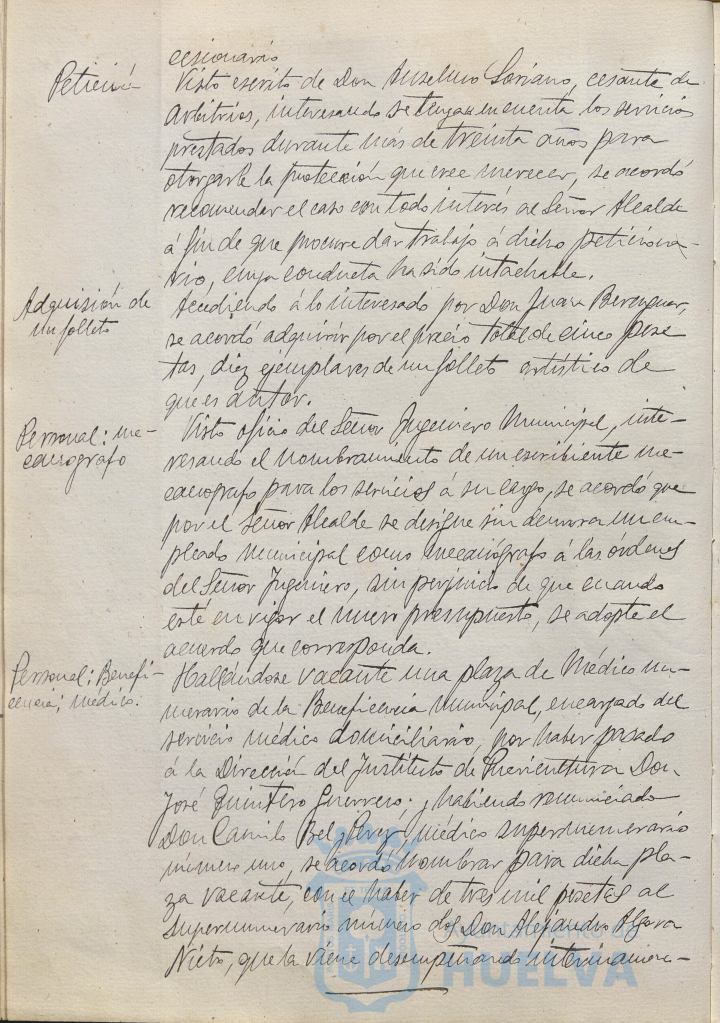 cesionario
Petición
Visto escrito de Don Anselmo Soriano, cesante de
Arbitrios, interesando se tenga en cuenta los servicios
prestados durante más de treinta años para
otorgarle la protección que cree merecer, se acordó
recomendar el caso con todo interés al Señor Alcalde
á fin de que procure dar trabajo á dicho peticiona-
rio, cuya conducta ha sido intachable.
Adquisión de
un folleto
Accediendo á lo interesado por Don Juan Berenguer,
se acordó adquirir por el precio total de cinco pese
tas, diez ejemplares de un folleto artístico de
que es autor.
Personal: me-
canografo
Visto oficio del Señor Ingeniero Municipal, inte-
resando el nombramiento de un escribiente me-
canografo para los servicios á su cargo, se acordó que
por el Señor Alcalde se designe sin demora un em-
pleado municipal como mecanógrafo á las órdenes
del Señor Ingeniero, sin perjuicio de que cuando
esté en vigor el nuevo presupuesto, se adopte el
acuerdo que corresponda.
Personal; Benefi-
cencia; médico.
Hallándose vacante una plaza de Médico nu-
merario de la Beneficencia municipal, encargado del
servicio médico domiciliario, por haber pasado
á la Dirección del Instituto de Puericultura Don
José Quintero Guerrero; y habiendo renunciado
Don Camilo Bel y Perez, médico supernumerario
número uno, se acordó nombrar para dicha pla-
za vacante, con el haber de tres mil pesetas al
supernumerario número dos Don Alejandro Algora
Nieto, que la viene desempeñando interinamen-
HUELVA